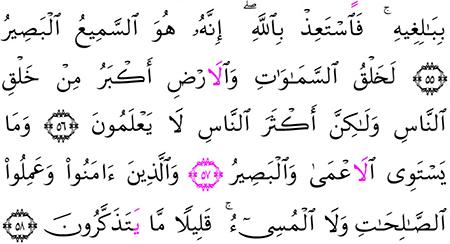 بِبَٰلِغِيهِ ۚ فَاَسْتَعِذْ بِاللَّهِ ۖ إِنَّهُۥ هُوَ السَّمِيعُ الْبَصِيرُ
﴿٥٥﴾ لَخَلْقُ السَّمَٰوَٰتِ وَالَارْضِ أَكْبَرُ مِنْ خَلْقِ
النَّاسِ وَلَٰكِنَّ أَكْثَرَ النَّاسِ لَا يَعْلَمُونَ ﴿٥٦﴾ وَمَا
يَسْتَوِى الَاعْمَىٰ وَالْبَصِيرُ ﴿٥٧﴾ وَالَّذِينَ ءَامَنُوا۟ وَعَمِلُوا۟
الصَّٰلِحَٰتِ وَلَا الْمُسِىٓءُ ۚ قَلِيلًا مَّا يَتَذَكَّرُونَ ﴿٥٨﴾